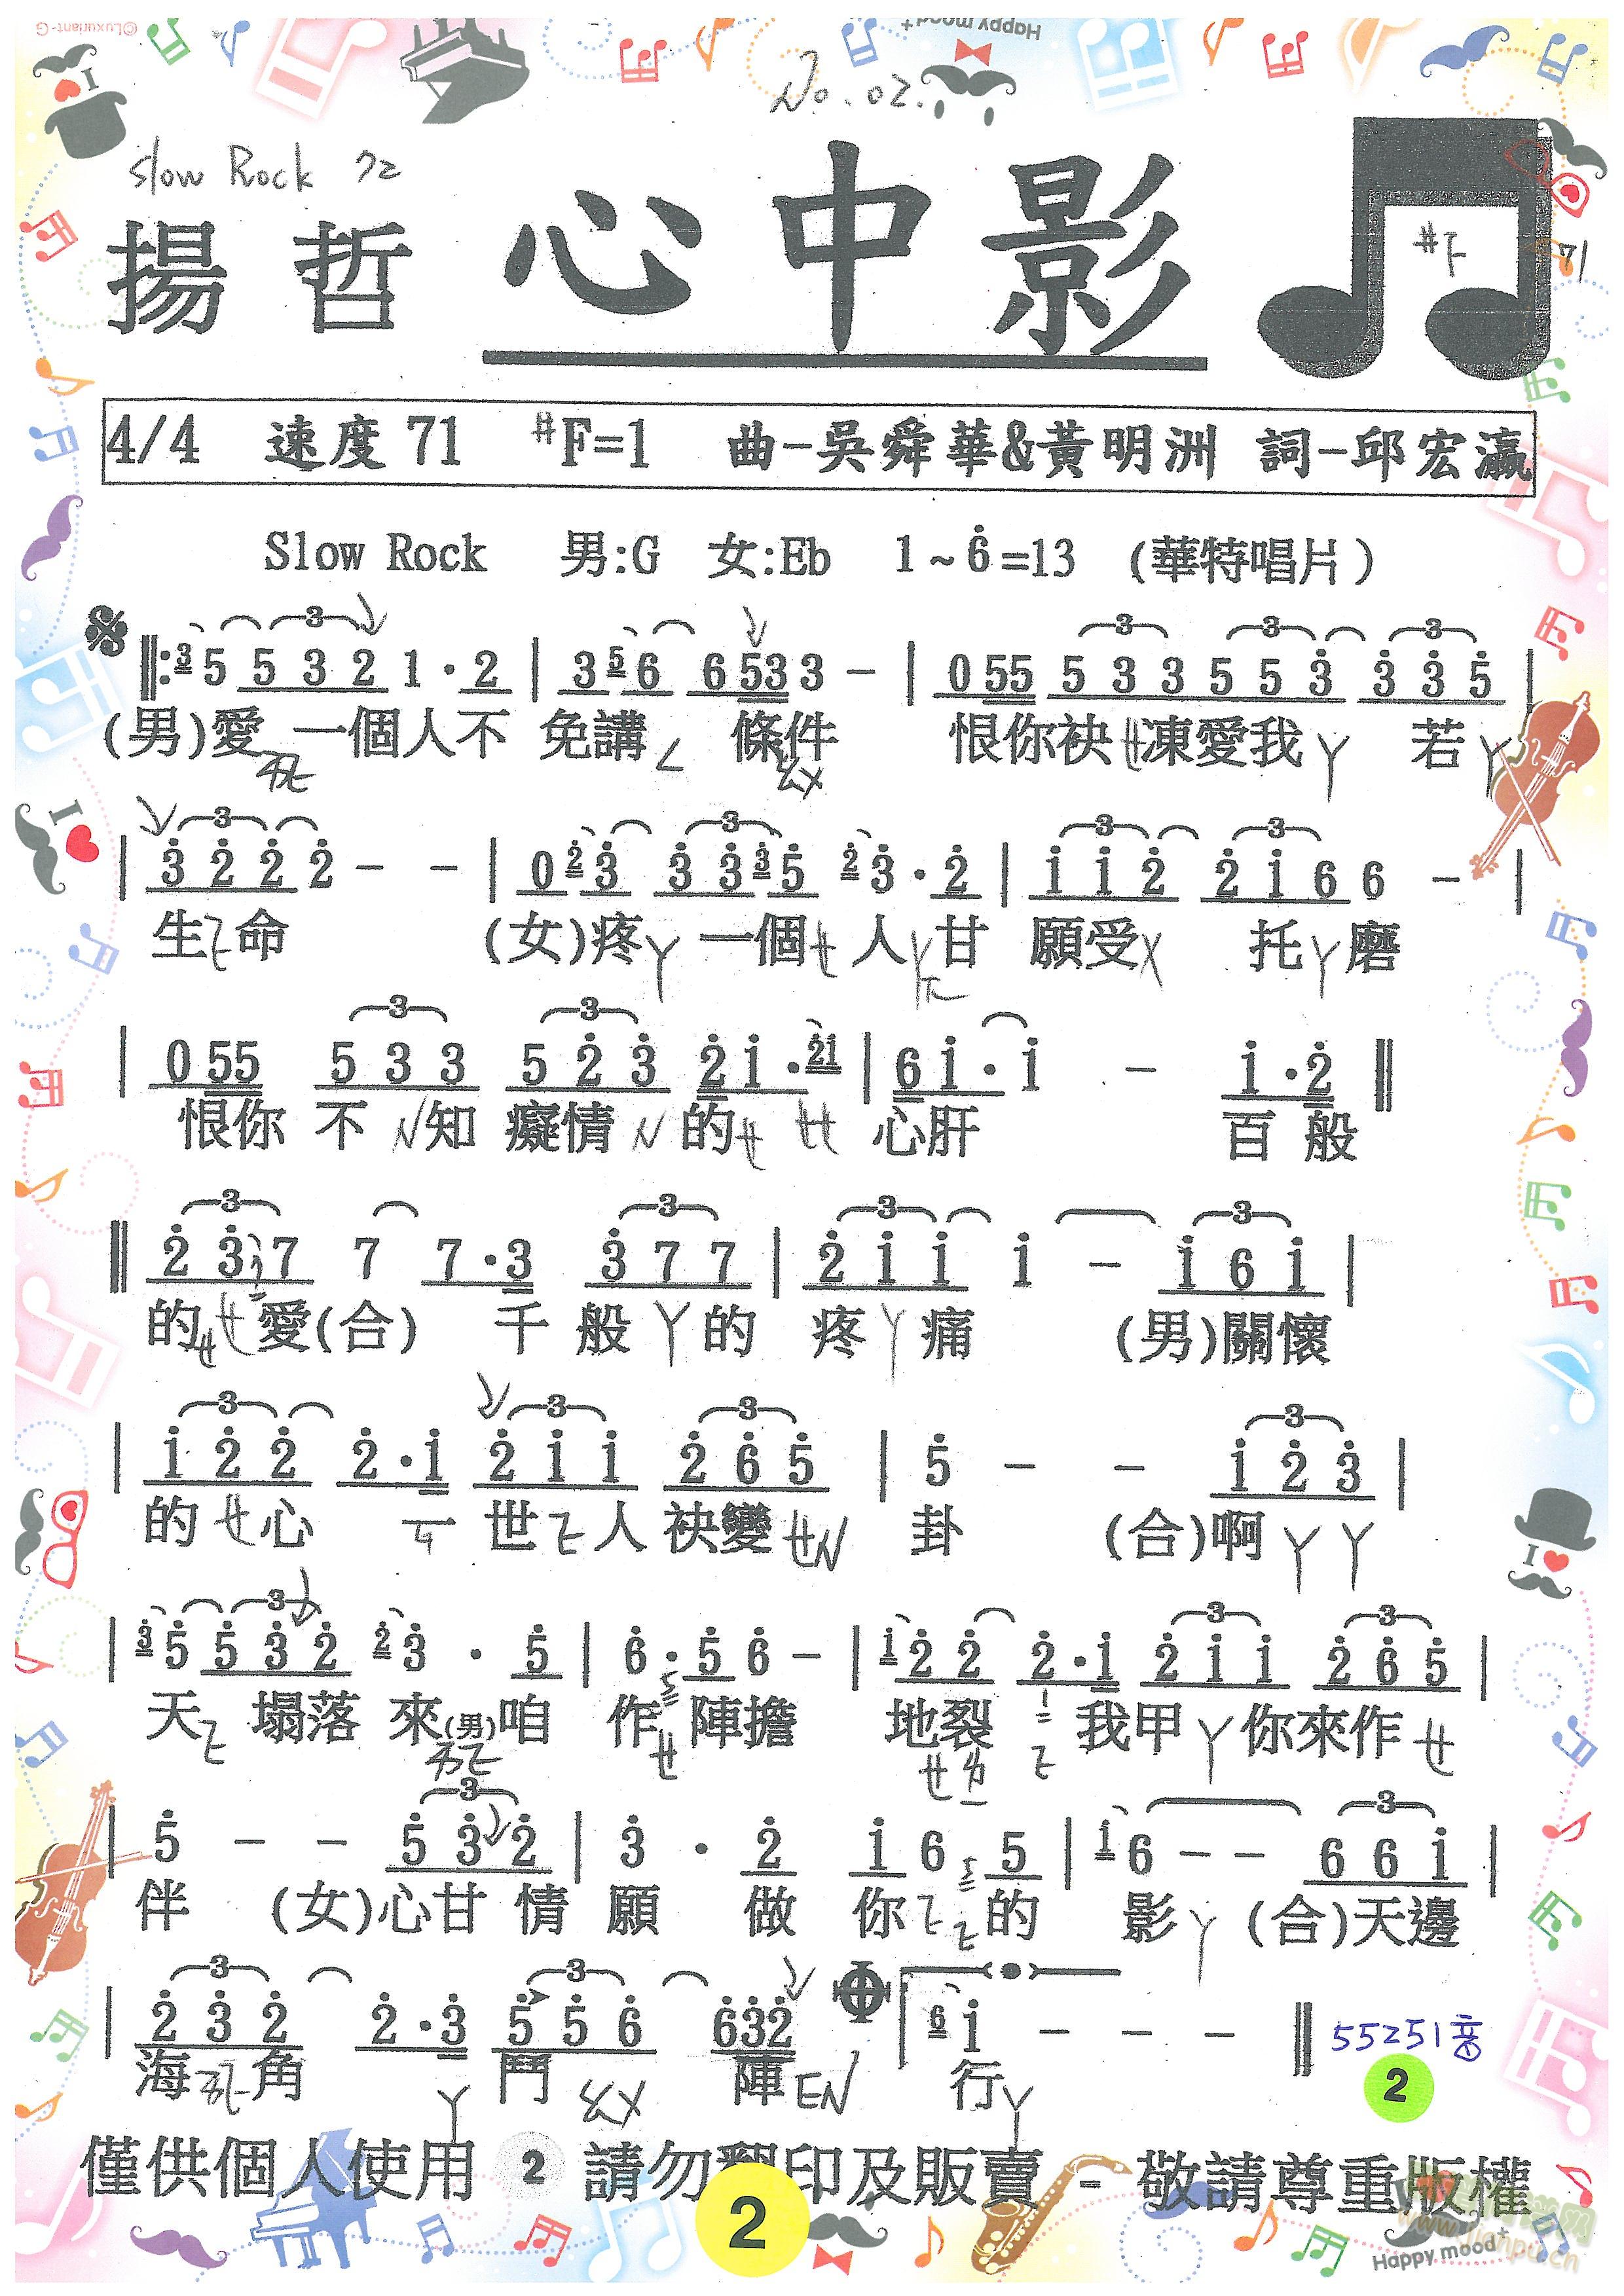 ©Luxuriant-G
Happy mood+
No. 02.
Slow Rock 72
揚 哲 心中影
#F 71
4/4 速度 71 #F=1 曲-吳舜華&黃明洲 詞-邱宏瀛
Slow Rock 男:G 女:Eb 1~6̇=13 (華特唱片)
‖: 3 5 5 3 2 1 · 2 | 3 5 6 6 5 3 3 - | 0 5 5 5 3 3 5 5 3̇ 3̇ 3̇ 5̇ |
(男)愛 一個人不 免講 ㄥ 條件 恨你袂ㄝ凍愛我ㄚ 若ㄚ
| 3̇ 2̇ 2̇ 2̇ - - | 0 2̇ 3̇ 3̇ 3̇ 3̇ 5̇ 2̇ 3̇ · 2̇ | 1̇ 1̇ 2̇ 2̇ 1̇ 6 6 - |
生ㄛ命 (女)疼ㄚ 一個ㄝ 人ㄚ甘 願受ㄨ 托ㄚ磨
| 0 5 5 5 3 3 5 2̇ 3̇ 2̇ 1̇ · 2̇ 1̇ | 6 1̇ · 1̇ - 1̇ · 2̇ ‖
恨你 不ㄣ知 癡情ㄣ 的ㄝ ㄝ 心肝 百 般
‖ 2̇ 3̇ 7 7 7 · 3̇ 3̇ 7 7 | 2̇ 1̇ 1̇ 1̇ - 1̇ 6 1̇ |
的ㄝㄝ愛(合) 千 般ㄚ的 疼ㄚ痛 (男)關懷
| 1̇ 2̇ 2̇ 2̇ · 1̇ 2̇ 1̇ 1̇ 2̇ 6̇ 5̇ | 5̇ - - 1̇ 2̇ 3̇ |
的ㄝ心 一 世ㄛ人 袂變ㄝㄣ 卦 (合)啊ㄚㄚ
| 3̇ 5̇ 5̇ 3̇ 2̇ 2̇ 3̇ · 5̇ | 6̇ · 5̇ 6̇ - | 1̇ 2̇ 2̇ 2̇ · 1̇ 2̇ 1̇ 1̇ 2̇ 6̇ 5̇ |
天ㄛ 塌落 來(男)咱 作ㄝ 陣擔 地裂 我甲ㄚ你來作ㄝ
| 5̇ - - 5̇ 3̇ 2̇ | 3̇ · 2̇ 1̇ 6 5 | 1̇ 6 - - 6 6 1̇ |
伴 (女)心甘 情 願 做 你ㄛㄛ的 影ㄚ (合)天邊
| 2̇ 3̇ 2̇ 2̇ · 3̇ 5̇ 5̇ 6̇ 6̇ 3̇ 2̇ | 6 1̇ - - - ‖ 55251音
海 角 ㄚ 鬥 ㄠㄨ 陣 EN 行ㄚ
2
僅供個人使用 2 請勿翻印及販賣 - 敬請尊重版權
2
Happy mood+